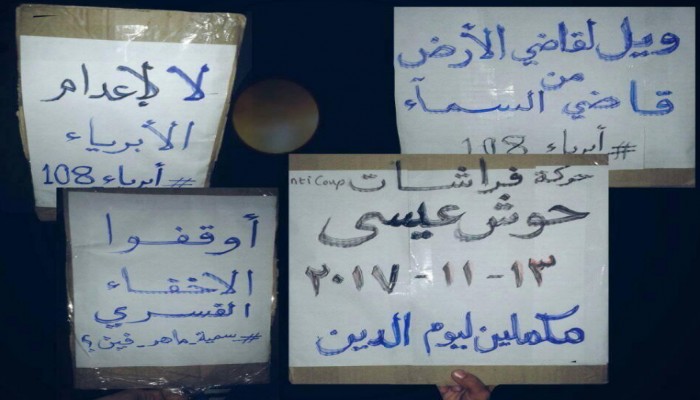 لا لإعدام
الأبرياء
#أبرياء 108
ويل لقاضي الأرض
من
قاضي السمآء
#أبرياء 108
أوقفوا
الاختفاء
القسري
#سمية_ماهر_فين؟
حركة فراشات nti Coup
حوش عيسى
١٣-١١-٢٠١٧
مكملين ليوم الدين